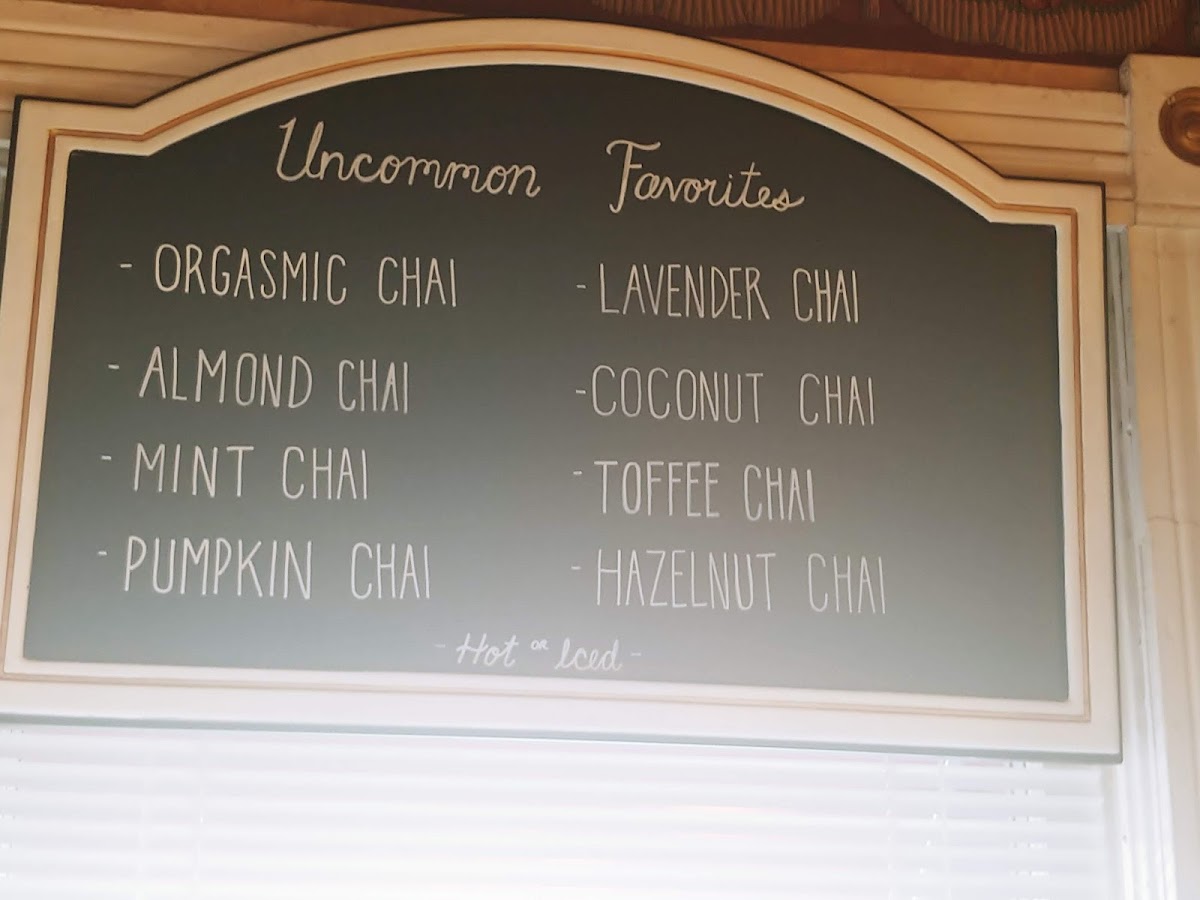 Uncommon Favorites
- ORGASMIC CHAI
- ALMOND CHAI
- MINT CHAI
- PUMPKIN CHAI
- LAVENDER CHAI
- COCONUT CHAI
- TOFFEE CHAI
- HAZELNUT CHAI
- Hot OR Iced -